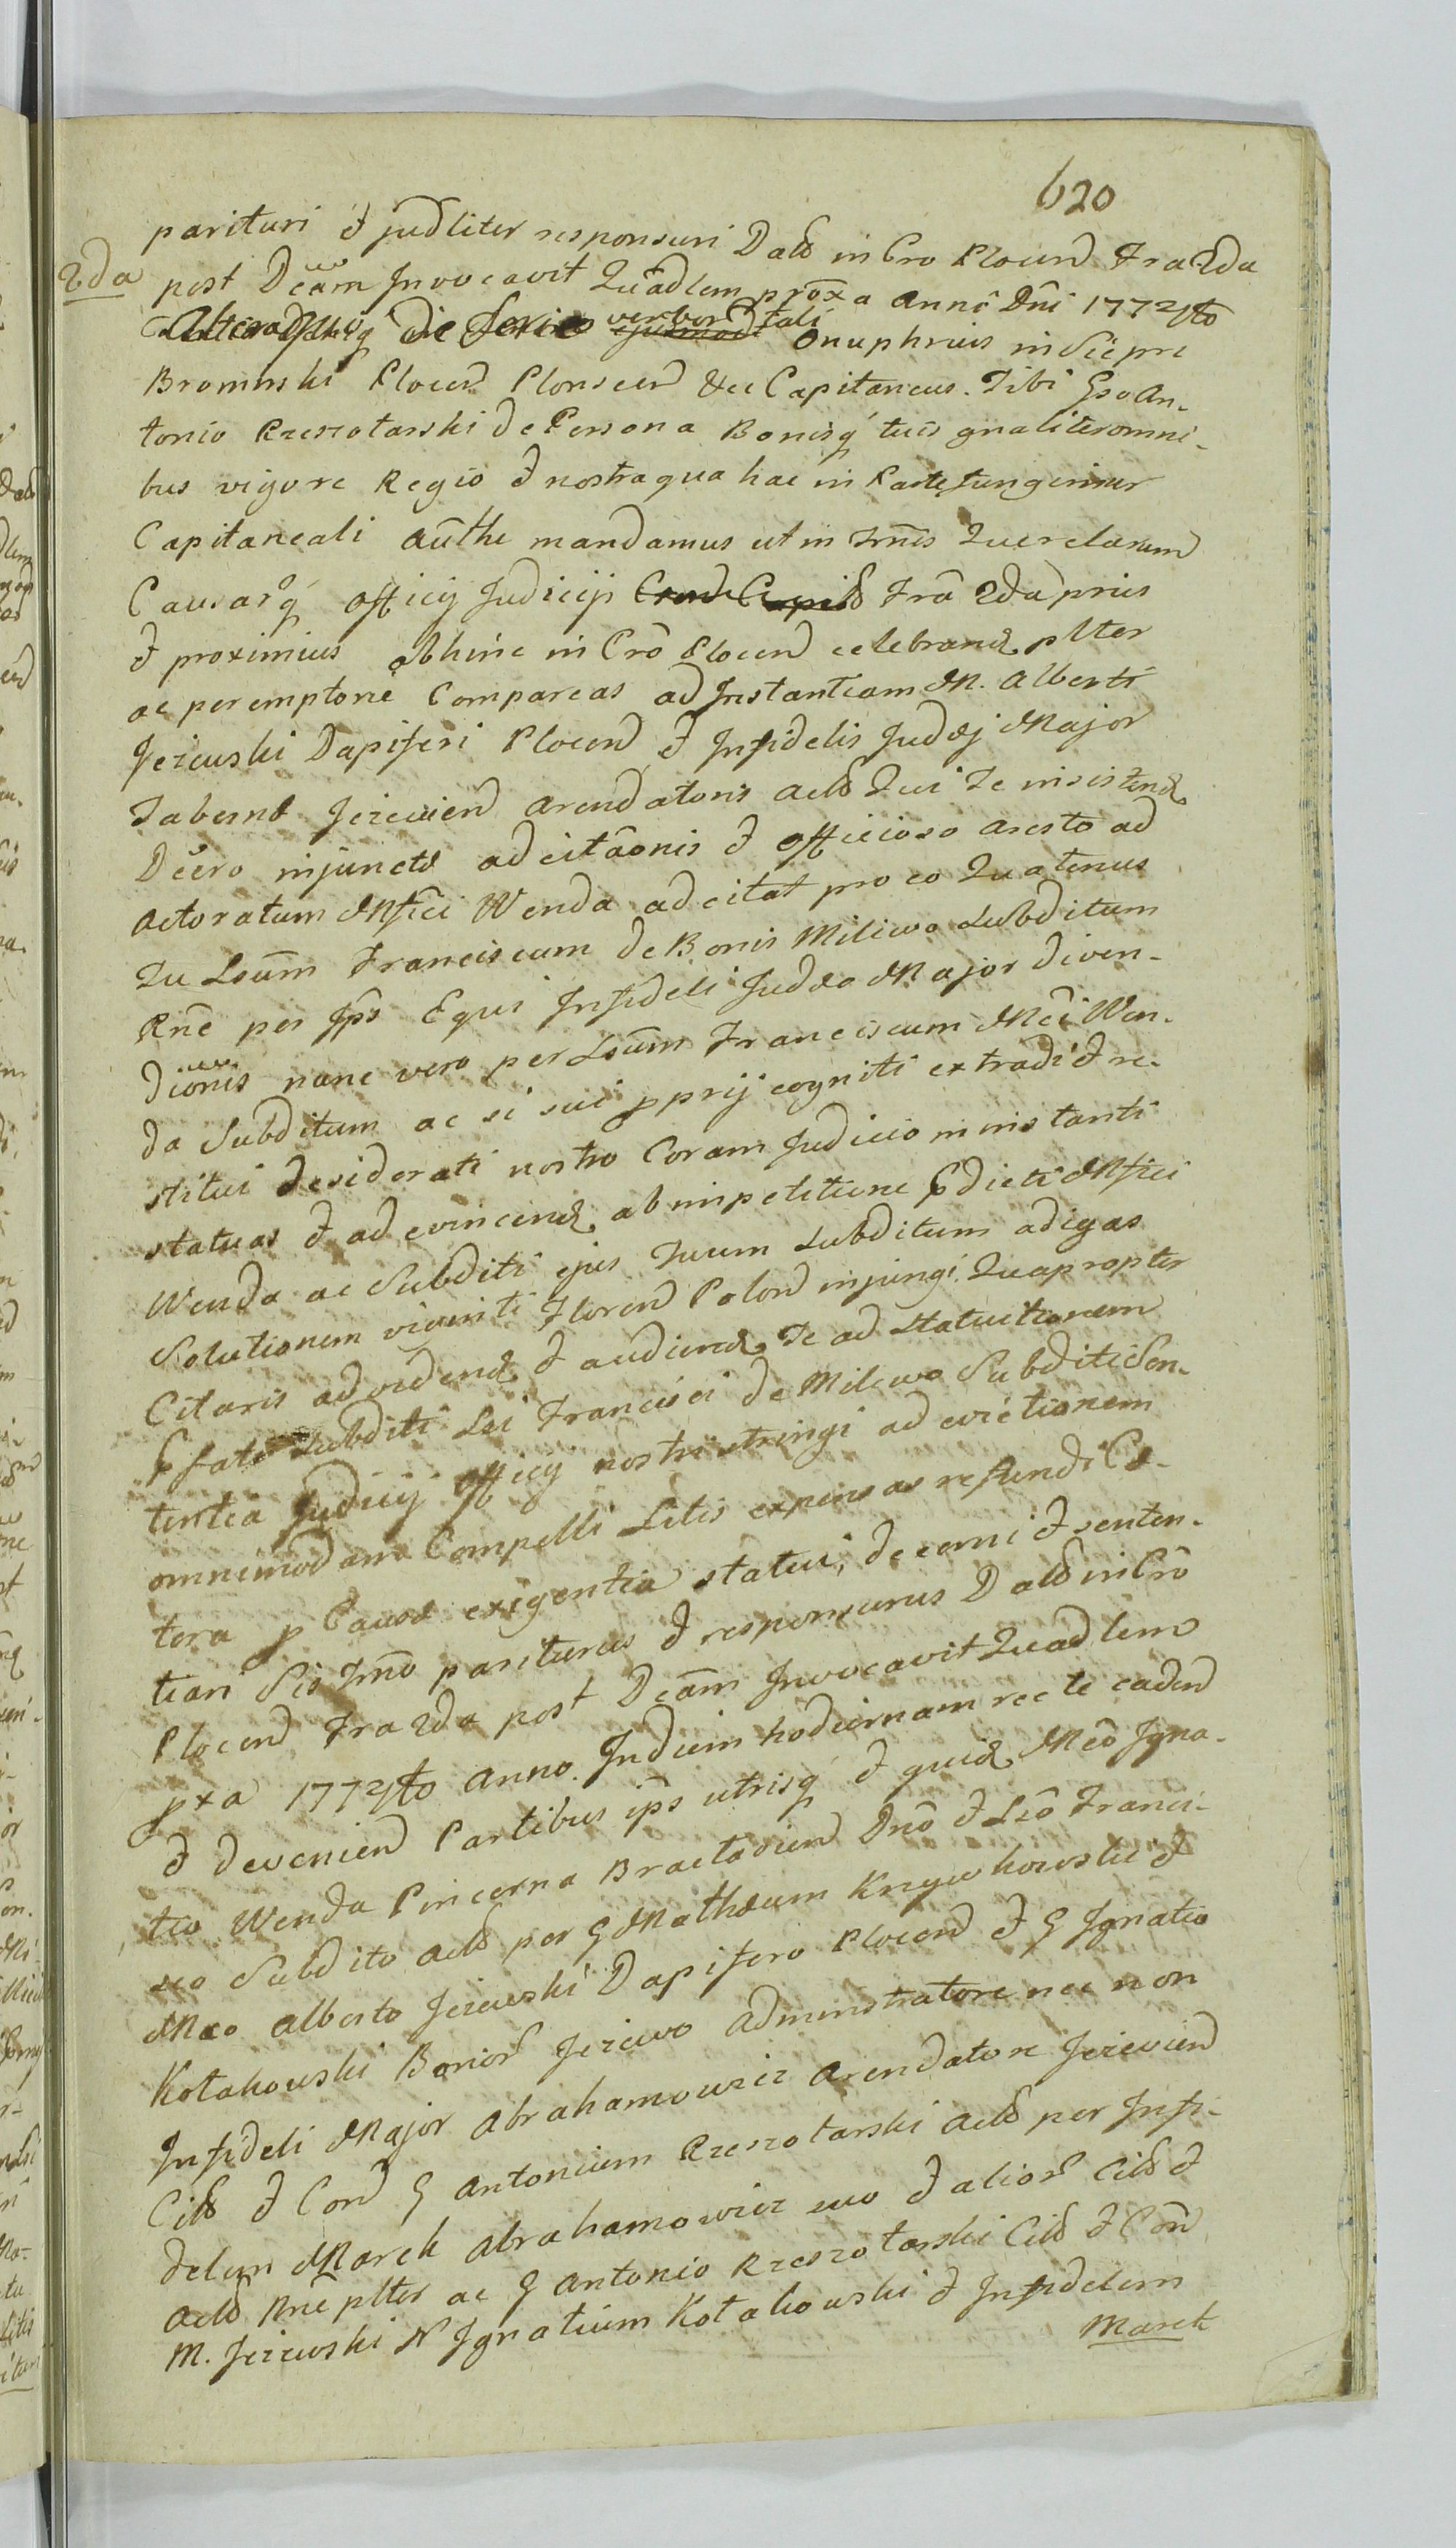 620
parituri & judliter responsuri Datt in Cro Plocen Fra 2da
2da post Dcam Invocavit Quadlem proxa anno Dni 1772do
Altera die Series verbor tali Onuphrius in Siepre
Brominski Plocen Plonscen &cc Capitaneus. Tibi Gso An-
tonio Rzeszotarski de Persona Bonisq tuis gnaliter omni-
bus vigore Regio & nostra qua hac in Parte fungimur
Capitaneali authe mandamus ut in Trnis Querelarum
Causarq Officij Judicij Fra 2da prius
& proximius abhinc in Cro Plocen celebrand plter
ac peremptorie Compareas ad Instantiam M. Alberti
Jezewski Dapiferi Plocen & Infidelis Judæj Major
Tabernæ Jezewien Arendatoris actt Qui Te insistend
Dcero injunctæ adcitaonis & officioso aresto ad
Actoratum Mfici Wenda adcitat pro eo Quatenus
Tu Lsum Franciscum de Bonis Milewo Subditum
Rne per Ips Equi Infideli Judæo Major diven-
dionis nunc vero per Lsum Franciscum Mci Wen-
da Subditum ac si sui pprij cogniti extradi & re-
stitui desiderati nostro Coram Judicio in instanti
statuas & ad evincend ab impetitione pdicti Mfici
Wenda ac Subditi ejus Tuum Subditum adigas
Solutionem viginti Floren Polon injungi. Quapropter
Citaris ad vidend & audiend Te ad Statuitionem
pfati Subditi Lsi Francisci de Milewo Subditi Sen-
tentia Judicij Officij nostri stringi ad evictionem
omnimodam Compelli Litis expensas refundi Cæ-
tera p Causæ exigentia statui, decerni & senten-
tiari Sis Trno pariturus & responsurus Datt in Cro
Plocen Fra 2da post Dcam Invocavit Quadlem
pxa 1772do Anno. In diem hodiernam recte caden
& devenien Partibus ips utrisq & quid Mco Igna-
tio Wenda Pincerna Braclavien Dno & Lso Franci-
sco Subdito actt per G Mathæum Krzywkowski &
Mco Alberto Jezewski Dapifero Plocen & G Ignatio
Kotakowski Bonor Jezewo Administratore nec non
Infideli Major Abrahamowicz Arendatore Jezewien
Citt & Con G Antonium Rzeszotarski actt per Infi-
delem Marek Abrahamowicz suo & alior Citt &
actt Rne plter ac G Antonio Rzeszotarski Citt & Con
M. Jezewski N Ignatium Kotakowski & Infidelem
Marek